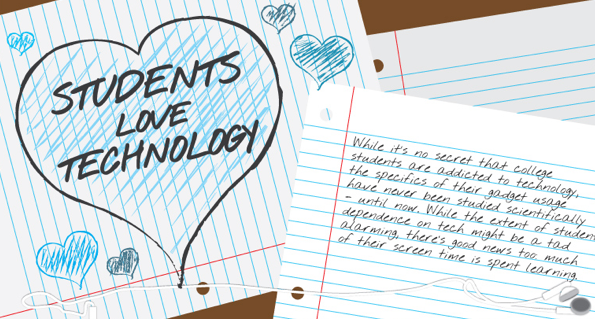 STUDENTS
LOVE
TECHNOLOGY
While it's no secret that college
students are addicted to technology,
the specifics of their gadget usage
have never been studied scientifically
- until now. While the extent of studen
dependence on tech might be a tad
alarming, there's good news too: much
of their screen time is spent learning.